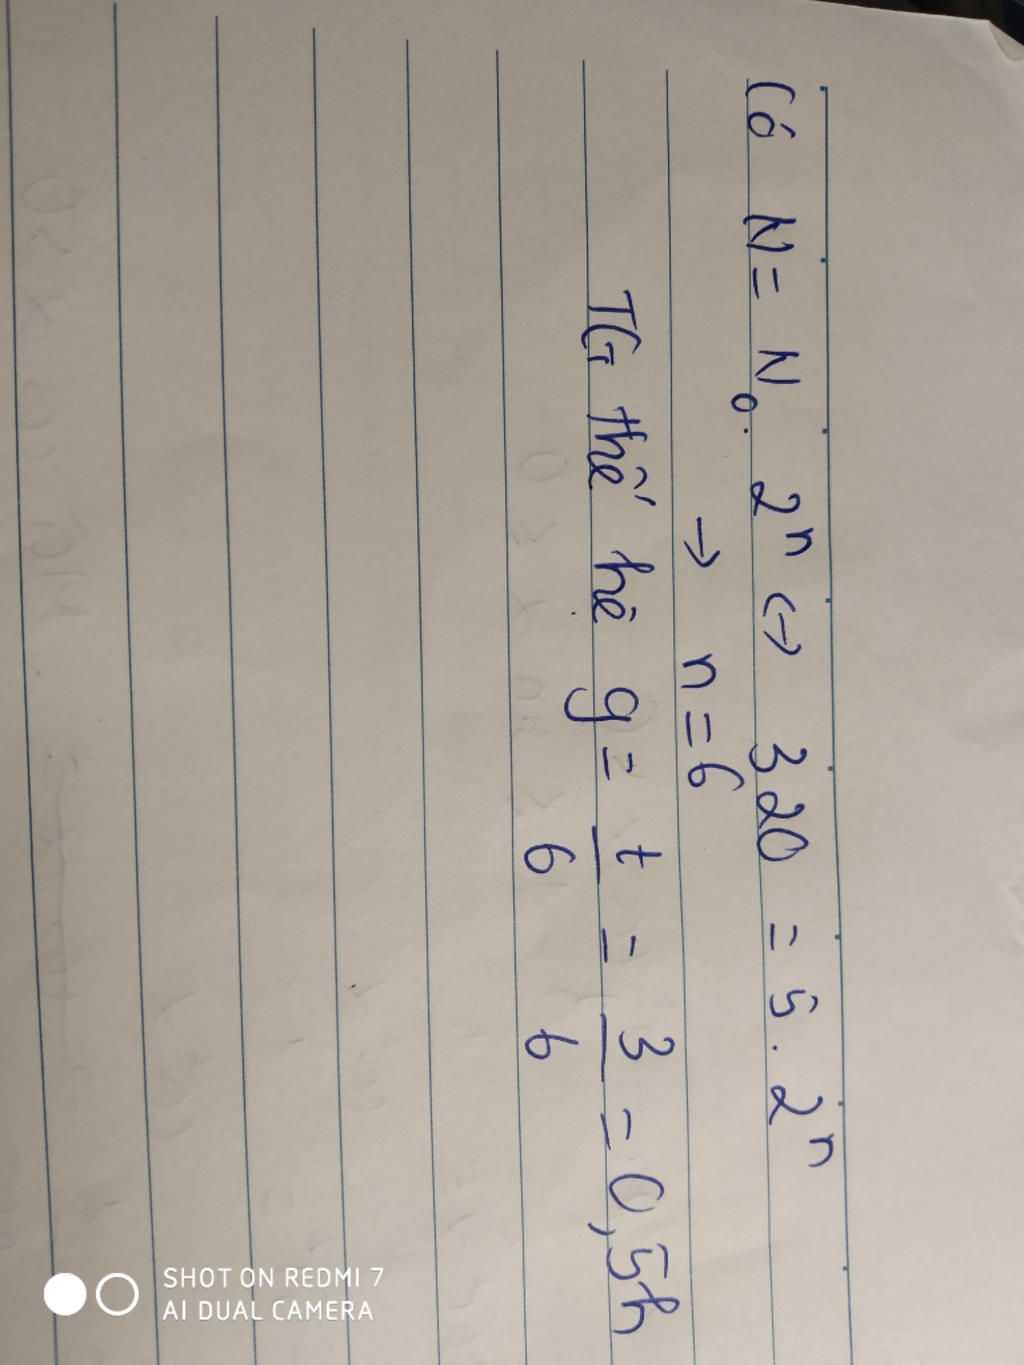 Có N = N₀. 2ⁿ ↔ 320 = 5. 2ⁿ
→ n = 6
TG thế hệ g = t/6 = 3/6 = 0,5h
SHOT ON REDMI 7
AI DUAL CAMERA